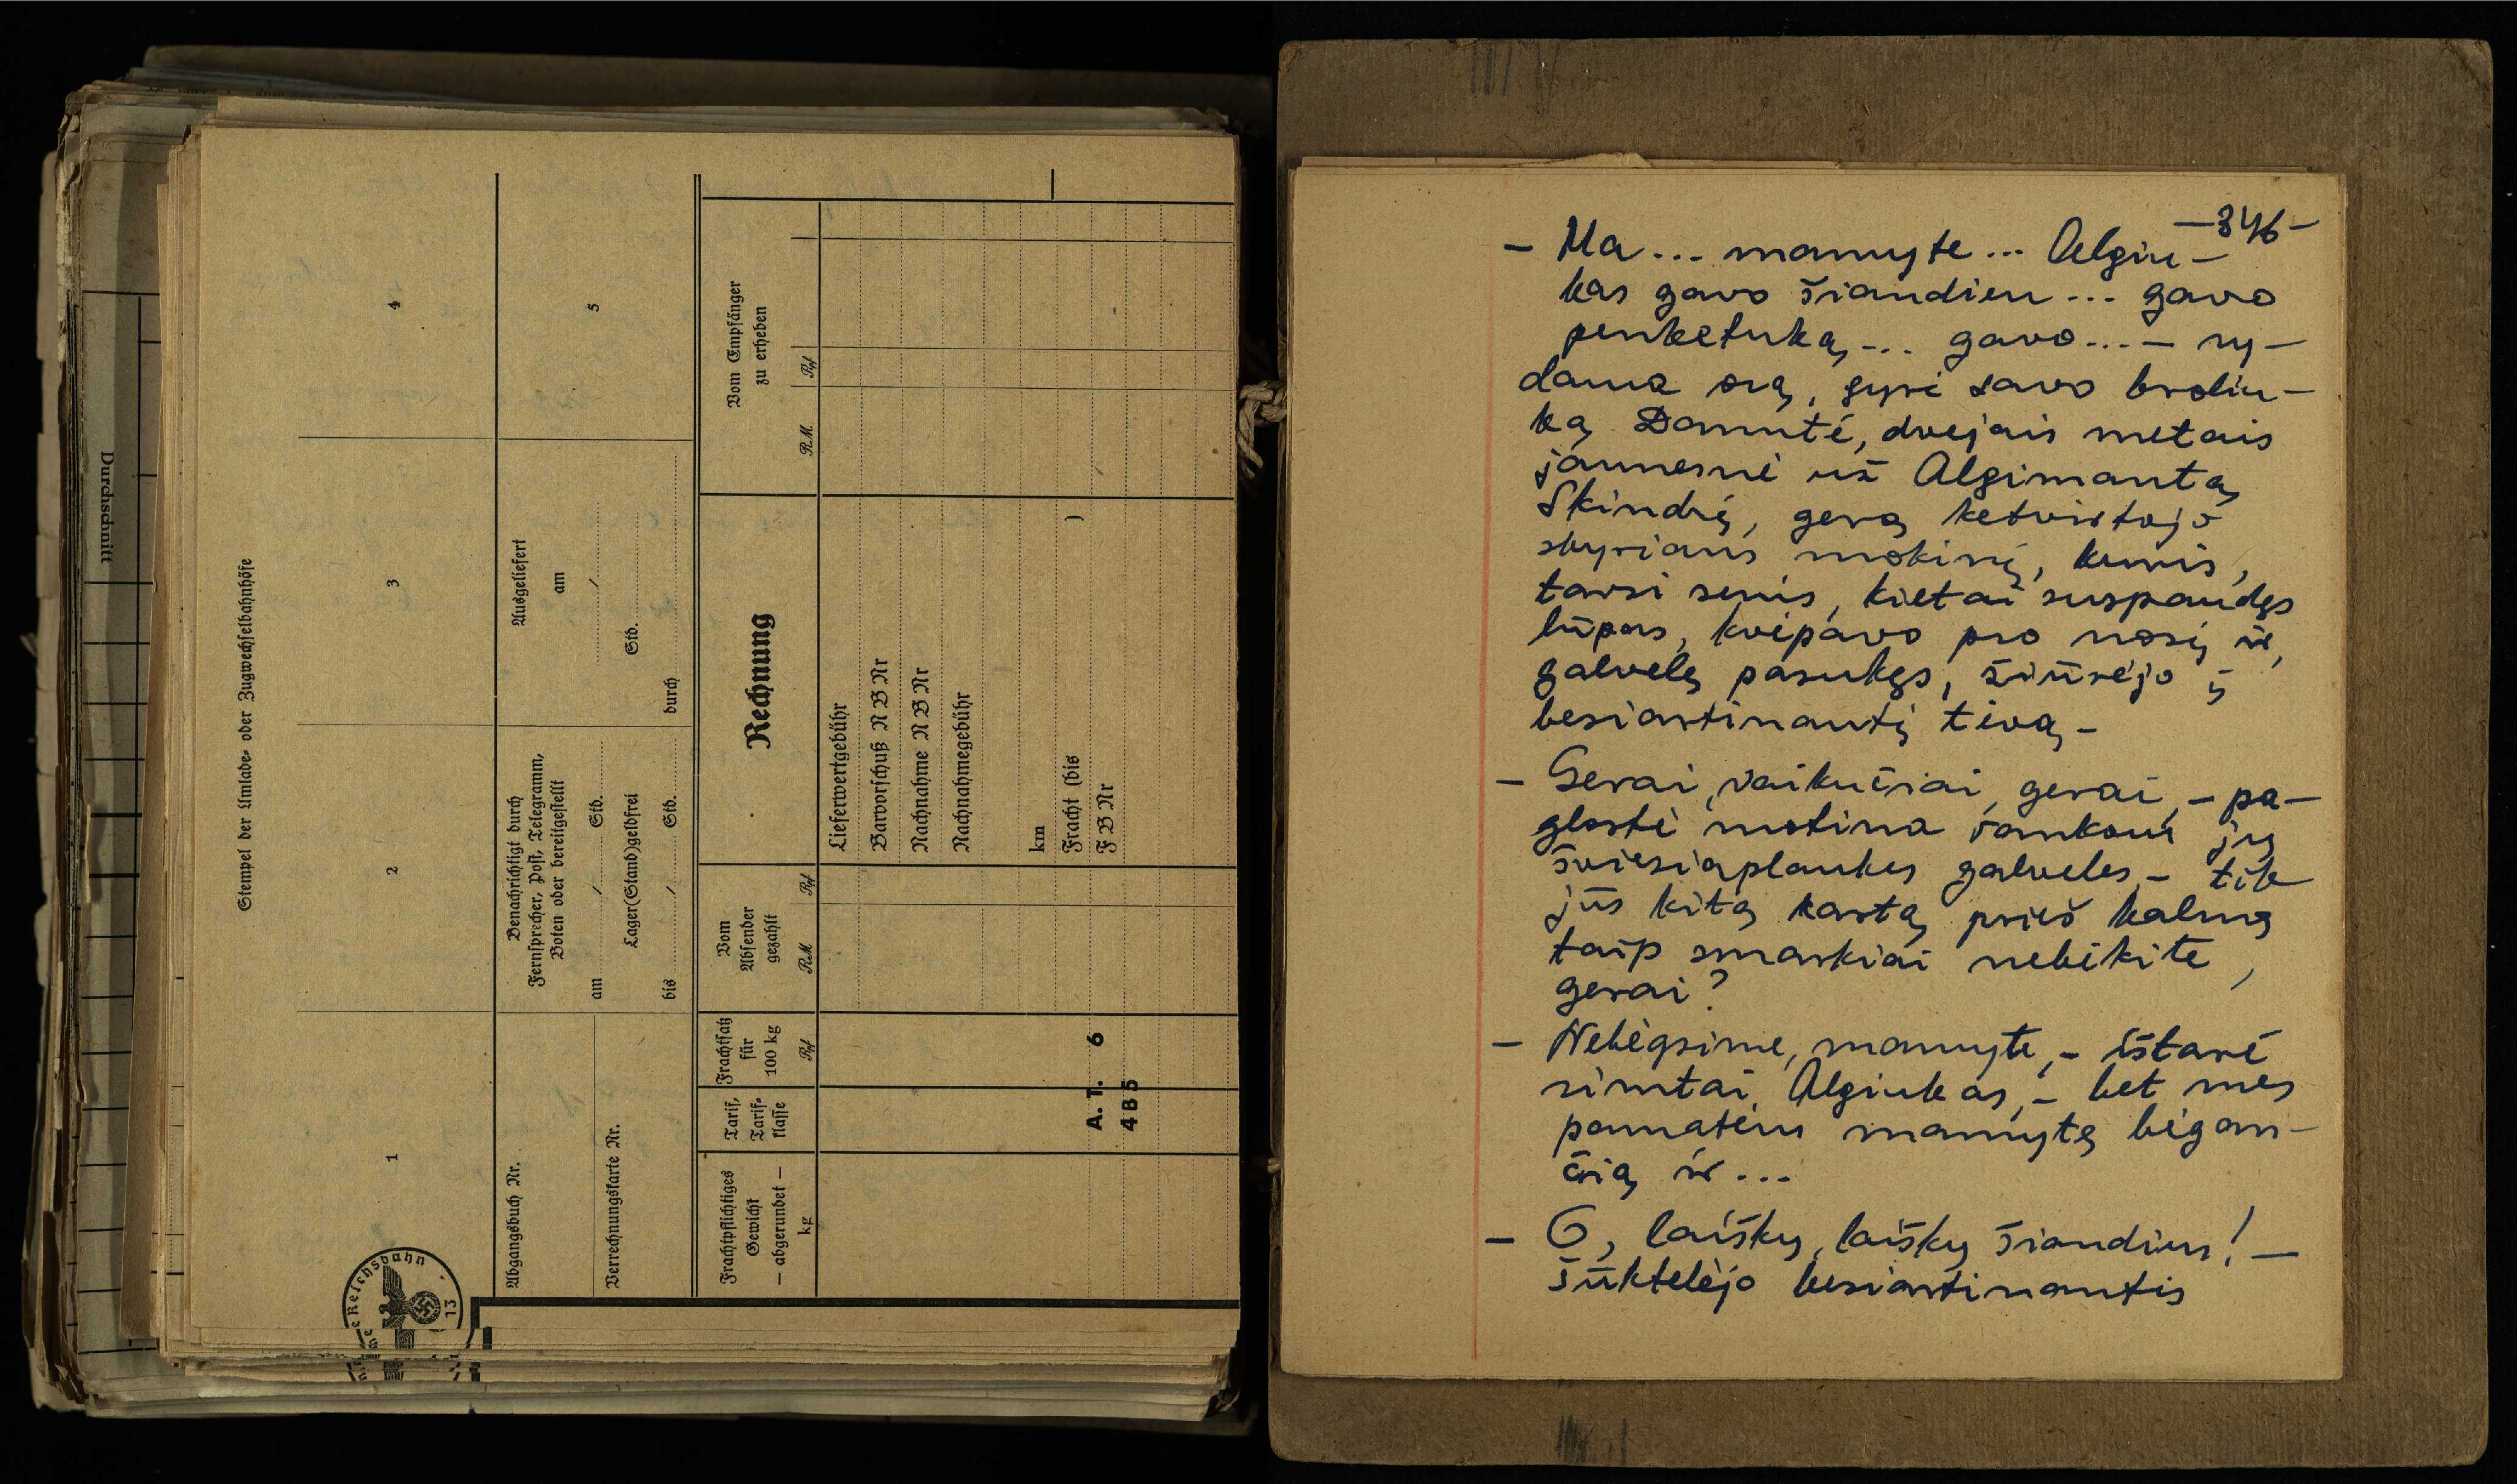 Durchschnitt
Stempel der Umlade- oder Zugwechselbahnhöfe
1
2
3
4
Abgangsbuch Nr.
Verrechnungskarte Nr.
Benachrichtigt durch
Fernsprecher, Post, Telegramm,
Boten oder bereitgestellt
am / Std.
Lager(Stand)geldfrei
bis / Std.
Ausgeliefert
am
/
Std.
durch
5
Frachtpflichtiges
Gewicht
— abgerundet —
kg
Tarif,
Tarif-
klasse
Frachtsatz
für
100 kg
Rpf
Vom
Absender
gezahlt
RM Rpf
Rechnung
Vom Empfänger
zu erheben
RM Rpf
Lieferwertgebühr
Barvorschuß N B Nr
Nachnahme N B Nr
Nachnahmegebühr
km
Fracht (bis )
F B Nr
A. T. 6
4 B 5
Reichsbahn
13
—346—
— Ma... mamyte... Algiu-
kas gavo šiandien... gavo
penketuką... gavo... — ry-
dama orą, gyrė savo broliu-
ką Danutė, dvejais metais
jaunesnė už Algimantą
Skindrį, gerą ketvirtojo
skyriaus mokinį, kuris,
tarsi senis, kietai suspaudęs
lūpas, kvėpavo pro nosį ir,
galvelę pasukęs, žiūrėjo į
besiartinantį tėvą. —
— Gerai, vaikučiai, gerai, — pa-
glostė motina rankom jų
šviesiaplaukes galveles, — tik
jūs kitą kartą prieš kalną
taip smarkiai nebėkite,
gerai?
— Nebėgsime, mamyte, — ištarė
rimtai Algiukas, — bet mes
pamatėm mamytę bėgan-
čią ir...
— O, laiškų, laiškų šiandien! —
šūktelėjo besiartinantis